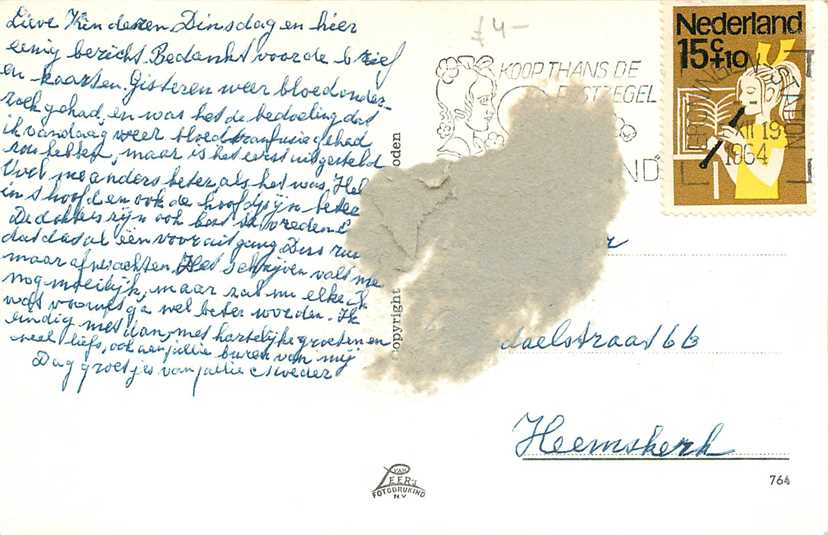 Lieve Kinderen Dinsdag en hier
eenig bericht. Bedankt voor de brief
en kaarten. Gisteren weer bloedonder-
zoek gehad, en was het de bedoeling dat
ik vandaag weer bloedtransfusie gehad
zou hebben, maar is het eerst uitgesteld
Voel me anders beter, als het was. Het
in 't hoofd en ook de hoofdpijn beter
De dokters zijn ook best tevreden
dat das al één vooruitgang Dus
maar afwachten. Het schrijven valt me
nog moeilijk, maar zal nu elke
wat vooruit ga wel beter worden. Ik
eindig met dan, met hartelijke groeten en
veel liefs, ook aan jullie buren van mij
Dag groetjes van jullie Moeder
£4-
KOOP THANS DE
Nederland
15c+10
XII 19
1964
daelstraat 66
Heemskerk
copyright
VAN
LEER's
FOTODRUKIND
N.V.
764